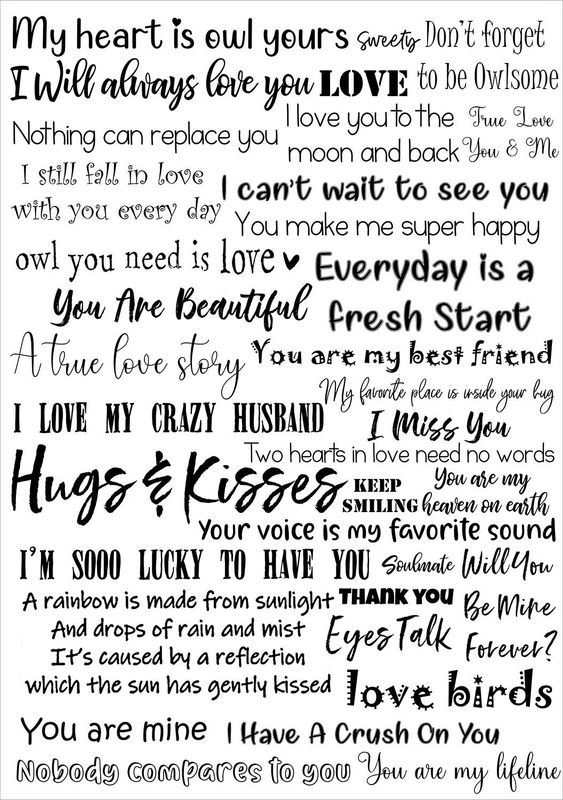 My heart is owl yours
sweety
Don't forget
to be Owlsome
I Will always love you
LOVE
Nothing can replace you
I love you to the
moon and back
True Love
You & Me
I still fall in love
with you every day
I can't wait to see you
You make me super happy
owl you need is love ♥
Everyday is a
fresh Start
You Are Beautiful
A true love story
You are my best friend
My favorite place is inside your hug
I LOVE MY CRAZY HUSBAND
I Miss You
Two hearts in love need no words
Hugs & Kisses
KEEP
SMILING
You are my
heaven on earth
Your voice is my favorite sound
I'M SOOO LUCKY TO HAVE YOU
Soulmate
Will You
Be Mine
Forever?
A rainbow is made from sunlight
And drops of rain and mist
It's caused by a reflection
which the sun has gently kissed
THANK YOU
Eyes Talk
love birds
You are mine
I Have A Crush On You
Nobody compares to you
You are my lifeline